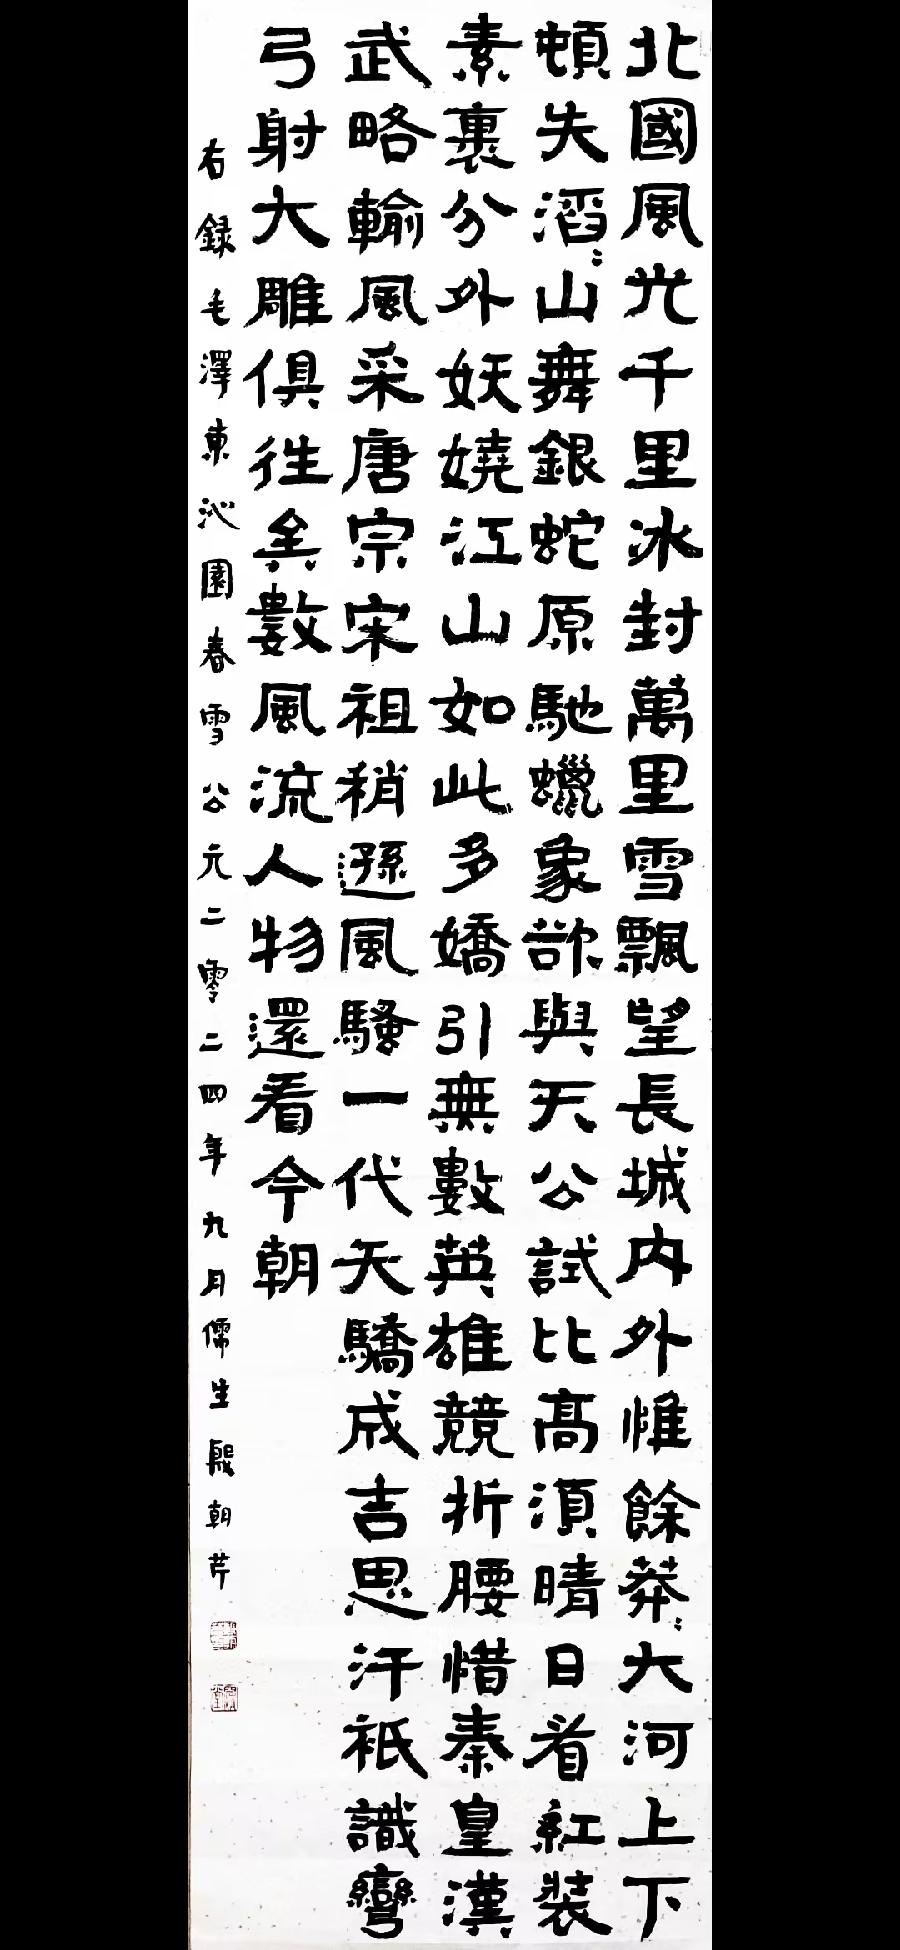 北國風光千里冰封萬里雪飄望長城內外惟餘莽〻大河上下
頓失滔〻山舞銀蛇原馳蠟象欲與天公試比高須晴日看紅裝
素裹分外妖嬈江山如此多嬌引無數英雄競折腰惜秦皇漢
武略輸風采唐宗宋祖稍遜風騷一代天驕成吉思汗祇識彎
弓射大雕俱往矣數風流人物還看今朝
右錄毛澤東沁園春雪公元二零二四年九月儒生殿朝芹